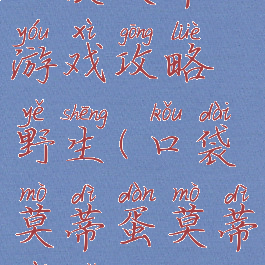 yóu xì gōng lüè
游戏攻略
yě shēng kǒu dài
野生(口袋
mò dì dàn mò dì
莫蒂蛋莫蒂